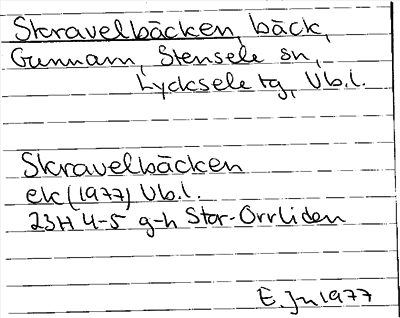 Skravelbäcken, bäck,
Gunnarn, Stensele sn,
Lycksele tg, Vb.l.
Skravelbäcken
ek (1977) Vb.l.
23H 4-5 g-h Stor-Orrliden
E. Jn 1977